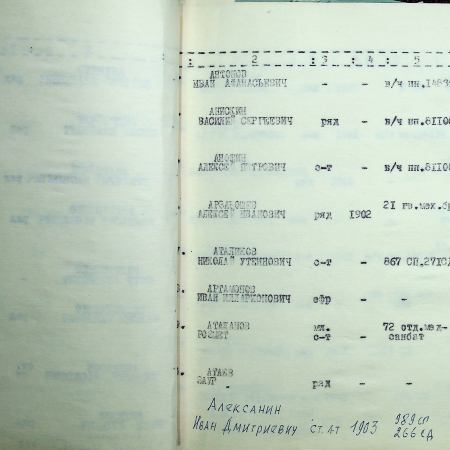 : 2 : 3 : 4 : 5
АНТОНОВ
ИВАН АФАНАСЬЕВИЧ - - в/ч пп.1483
АНИСКИН
ВАСИЛИЙ СЕРГЕЕВИЧ ряд - в/ч пп.81100
АНОШИН
АЛЕКСЕЙ ПЕТРОВИЧ с-т - в/ч пп.81100
АРБАЮШЕВ 21 гв.мех.бр
АЛЕКСЕЙ ИВАНОВИЧ ряд 1902
АТАЛИКОВ
НИКОЛАЙ УТЕИНОВИЧ с-т - 867 СП,271СД
АРТАМОНОВ
ИВАН ИЛЛАРИОНОВИЧ ефр - -
АТАПАНОВ мл. 72 отд.мед-
РОЗМЕТ с-т - санбат
АТАЕВ
ЗАУР - ряд - -
Алексанин
Иван Дмитриевич ст. л-т 1903 989 сп
266 сд